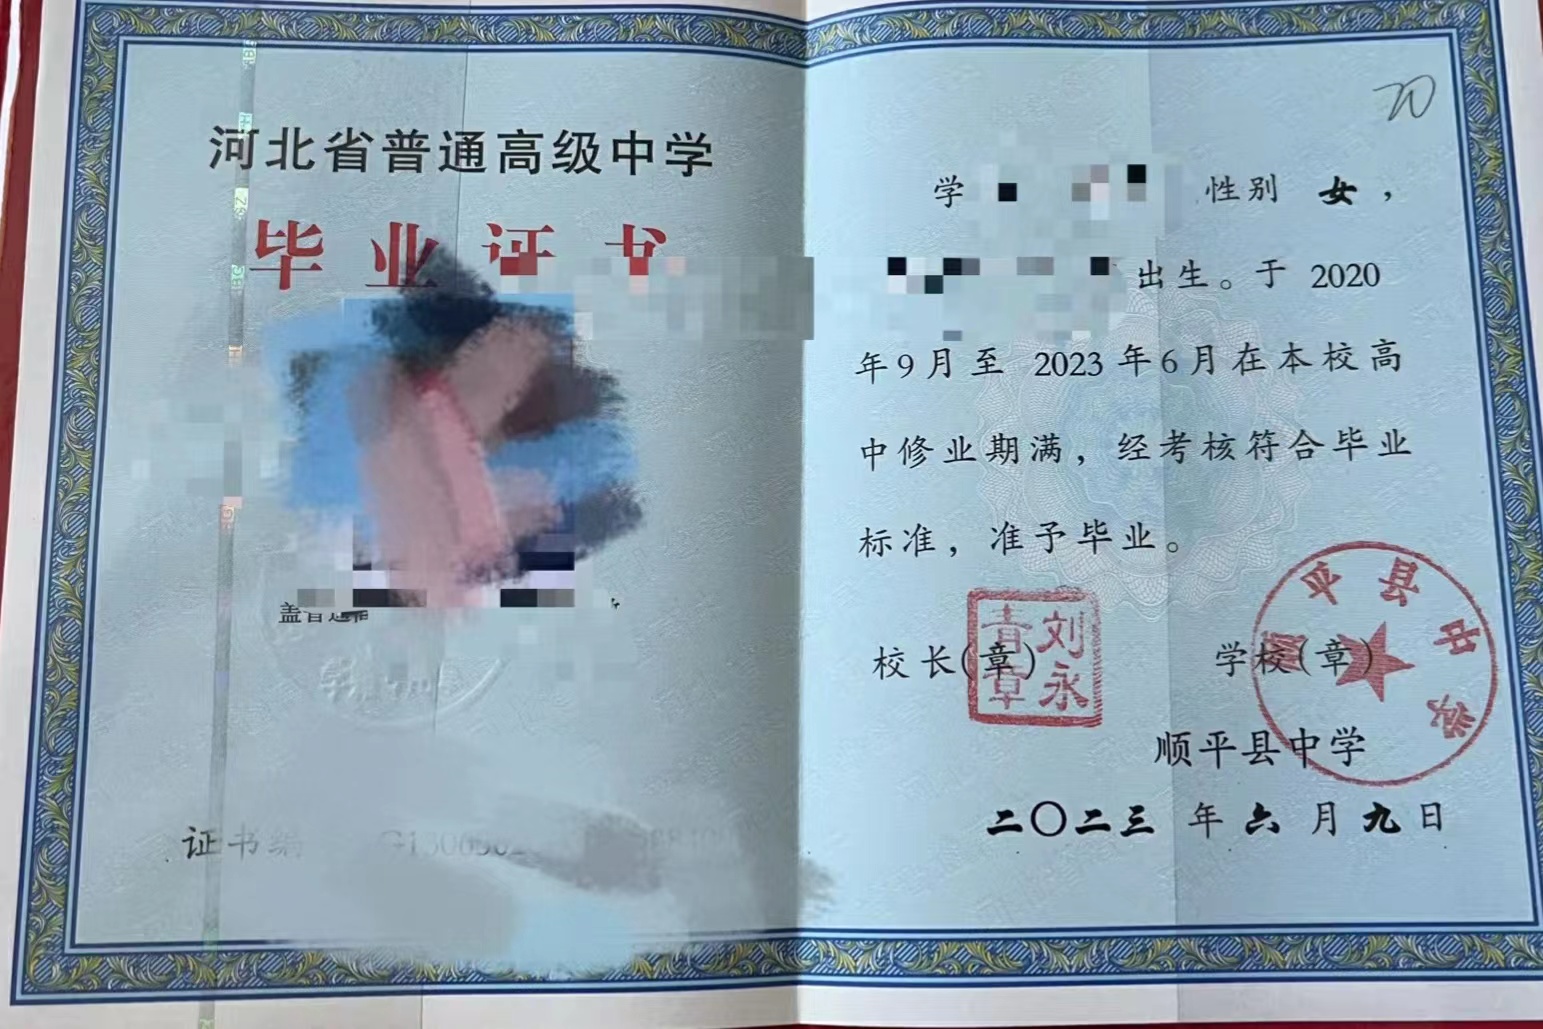 河北省普通高级中学
毕业证书
盖普通
证书编
学
性别 女，
出生。于 2020
年9月至 2023年6月在本校高
中修业期满，经考核符合毕业
标准，准予毕业。
校长(章)
刘永青章
学校(章)
顺平县中学
顺平县中学
二〇二三 年 六 月 九 日